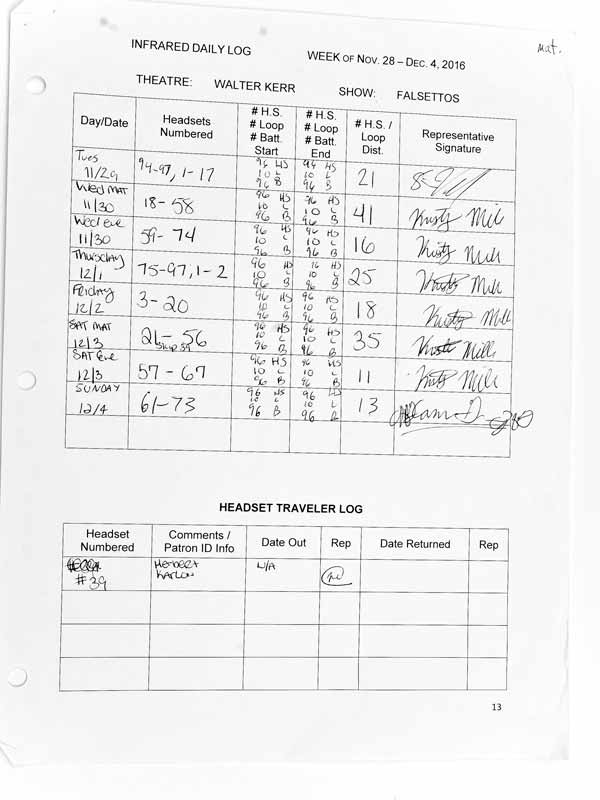 mat.
INFRARED DAILY LOG WEEK OF NOV. 28 – DEC. 4, 2016
THEATRE: WALTER KERR SHOW: FALSETTOS
Day/Date Headsets Numbered # H.S. # Loop # Batt. Start # H.S. # Loop # Batt. End # H.S. / Loop Dist. Representative Signature
Tues 11/29 94-97, 1-17 96 HS 10 L 96 B 96 HS 10 L 96 B 21
Wed Mat 11/30 18-58 96 HS 10 L 96 B 96 HS 10 L 96 B 41 Kristy Mill
Wed eve 11/30 59-74 96 HS 10 L 96 B 96 HS 10 L 96 B 16 Kristy Mill
Thursday 12/1 75-97, 1-2 96 HS 10 L 96 B 96 HS 10 L 96 B 25 Kristy Mill
Friday 12/2 3-20 96 HS 10 L 96 B 96 HS 10 L 96 B 18 Kristy Mill
SAT MAT 12/3 21-56 skip 39 96 HS 10 L 96 B 96 HS 10 L 96 B 35 Mill
SAT eve 12/3 57-67 96 HS 10 L 96 B 96 HS 10 L 96 B 11 Mill
SUNDAY 12/4 61-73 96 HS 10 L 96 B 96 HS 10 L 96 B 13
HEADSET TRAVELER LOG
Headset Numbered Comments / Patron ID Info Date Out Rep Date Returned Rep
#39 Herbert Karlow N/A
13